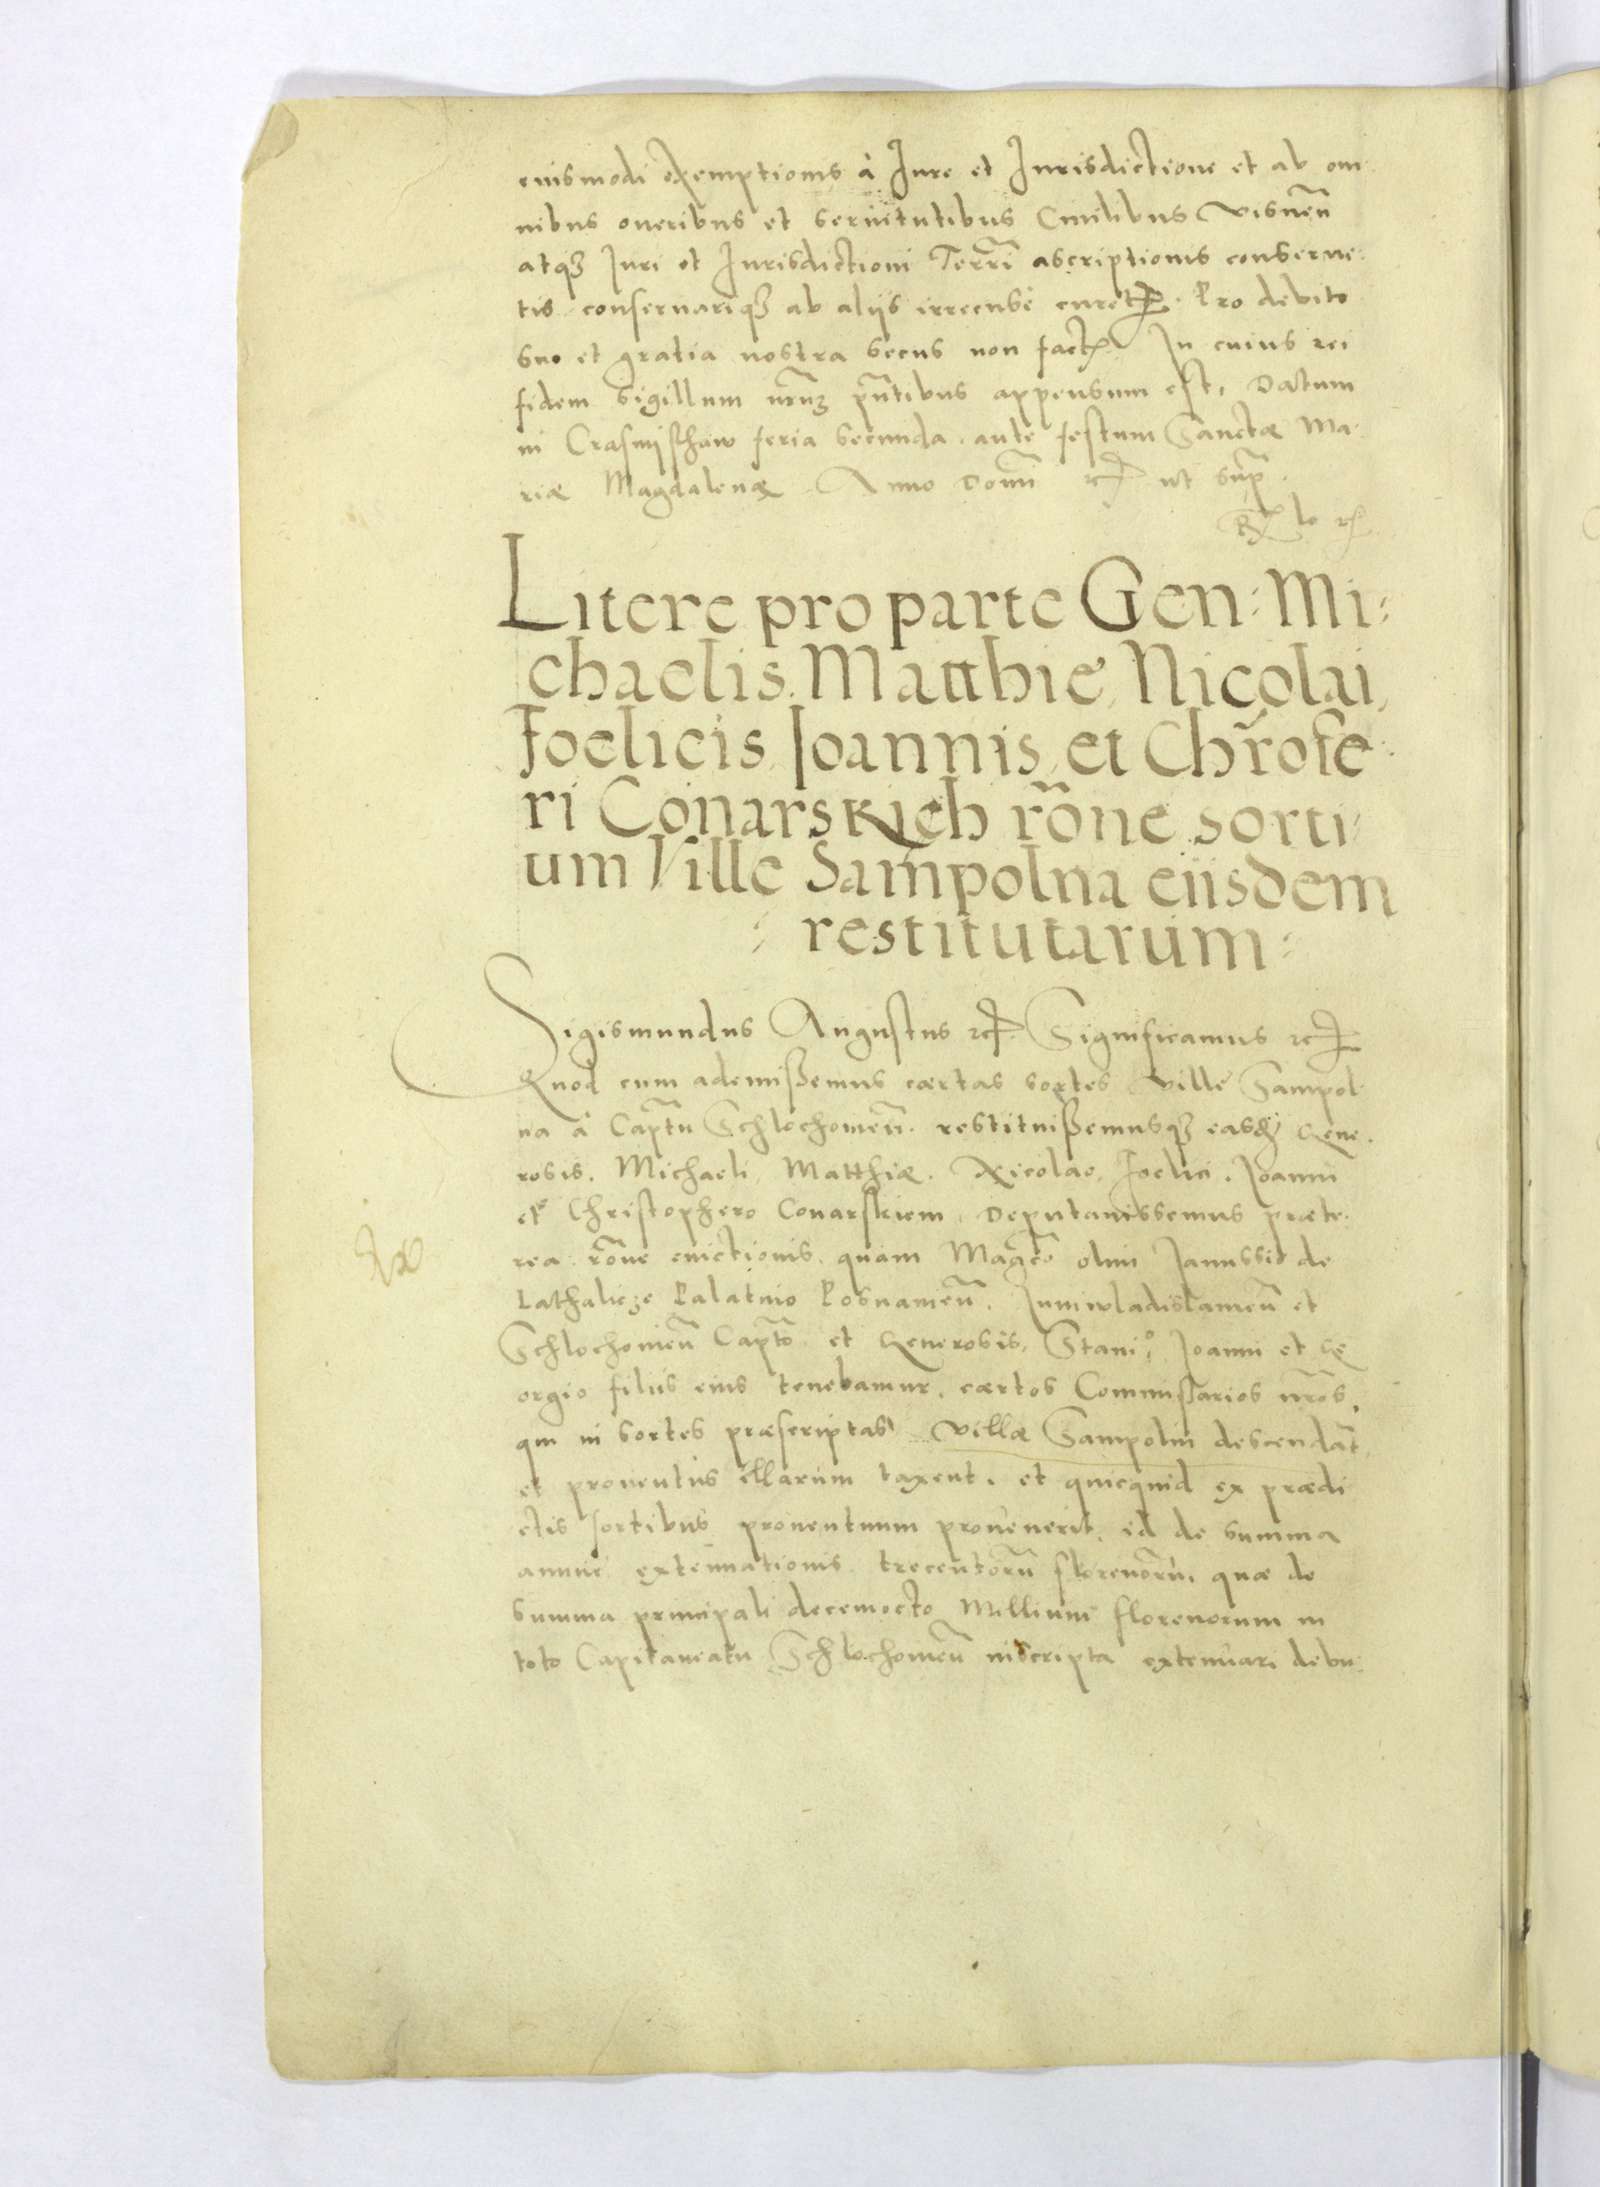 euismodi exemptionis à Iure et Jurisdictione et ab om
nibus oneribus et seruitutibus Ciuilibus Visneñ
atq3 Juri et Jurisdictioni Terrñ ascriptionis conserue
tis conseruariq3 ab aliis irrecuse curet. Pro debito
suo et gratia nostra secus non fact. In cuius rei
fidem Sigillum nrũ pñtibus appensum est. Datum
in Crasnisthaw feria Secunda ante festum Sanctæ Ma
riæ Magdalenæ Anno Domi ut sup
Litere pro parte Gen: Mi:
chaelis Matthie, Nicolai,
Foelicis, Ioannis, et Chr̃ofe
ri Conarskich rõne sorti
um Ville Sampolna eiisdem
restitutarum
Sigismundus Augustus etc. Significamus etc.
Quod cum ademissemus cærtas sortes Ville Sampol
na à Captu Schlochomeñ. restituissemusq3 easd Gene
rosis, Michaeli, Matthiæ, Nicolao, Foelici, Joanni
et Christophero Conarskiem, Deputauissemus præte
rea rõne euictionis, quam Magco olim Janussio de
Lathalicze Palatino Posnanieñ, Juniwladislauieñ et
Schlochomeñ Capto et Generosis, Stanio, Joanni et Ge
orgio filiis eius tenebamur, cærtos Commissarios nros,
qui in sortes præscriptas Villæ Sampolin descendãt
et prouentus illarum taxent, et quicquid ex prædi
ctis sortibus prouentuum prouenerit, id de summa
annue extenuationis trecentorũ florenorũ, quæ de
summa principali decemocto Millium florenorum in
toto Capitaneatu Schlochomeñ inscripta extenuari debu